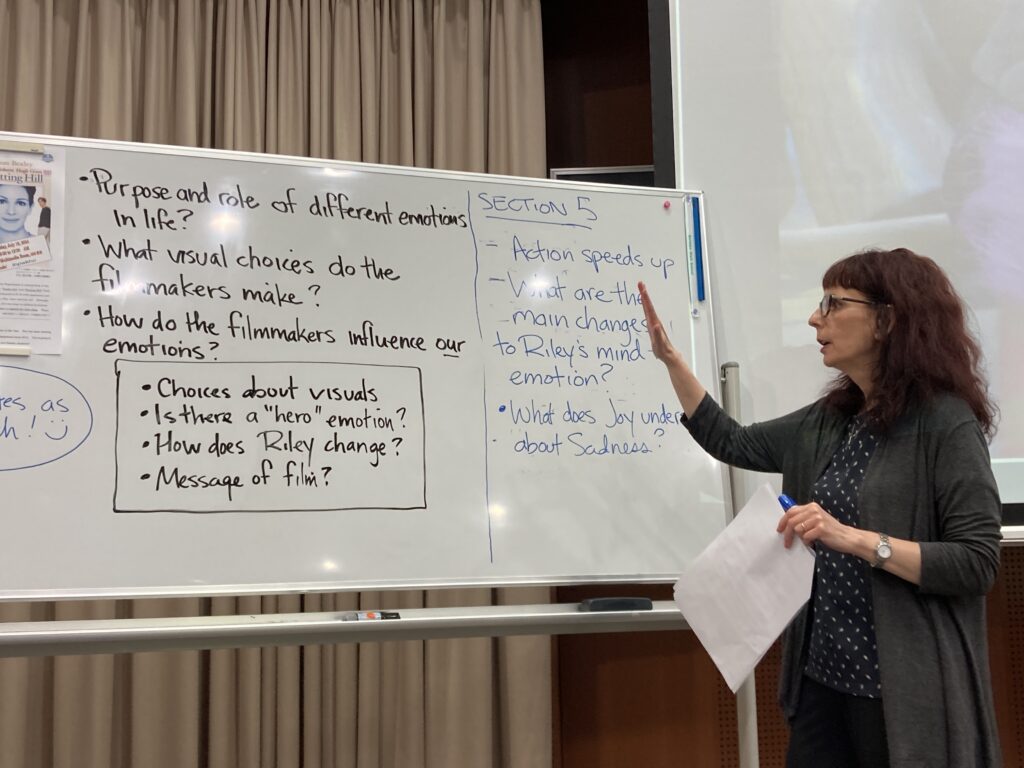 tting Hill
• Purpose and role of different emotions
in life?
• What visual choices do the
filmmakers make?
• How do the filmmakers influence our
emotions?
• Choices about visuals
• Is there a "hero" emotion?
• How does Riley change?
• Message of film?
as
!
SECTION 5
- Action speeds up
- What are the
main changes
to Riley's mind-
emotion?
• What does Joy under
about Sadness?